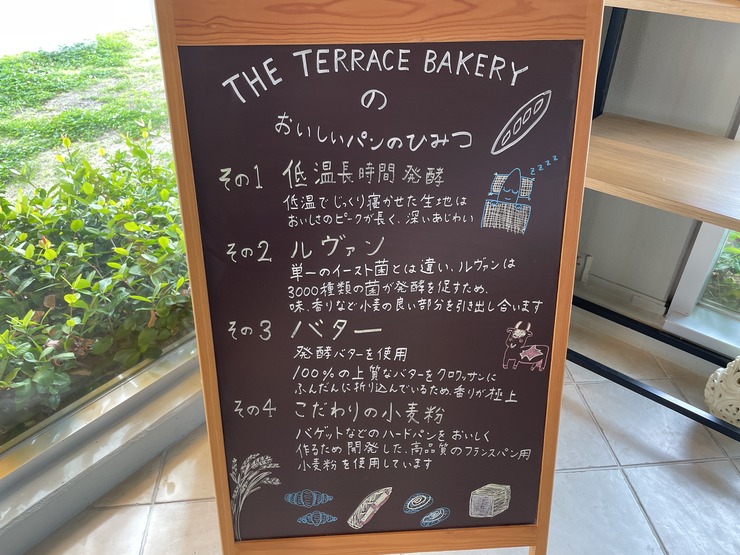 THE TERRACE BAKERY
の
おいしいパンのひみつ
zzzz
その1 低温長時間発酵
低温でじっくり寝かせた生地は
おいしさのピークが長く、深いあじわい
その2 ルヴァン
単一のイースト菌とは違い、ルヴァンは
3000種類の菌が発酵を促すため、
味、香りなど小麦の良い部分を引き出し合います
その3 バター
発酵バターを使用
100%の上質なバターをクロワッサンに
ふんだんに折り込んでいるため、香りが極上
その4 こだわりの小麦粉
バゲットなどのハードパンをおいしく
作るため開発した、高品質のフランスパン用
小麦粉を使用しています